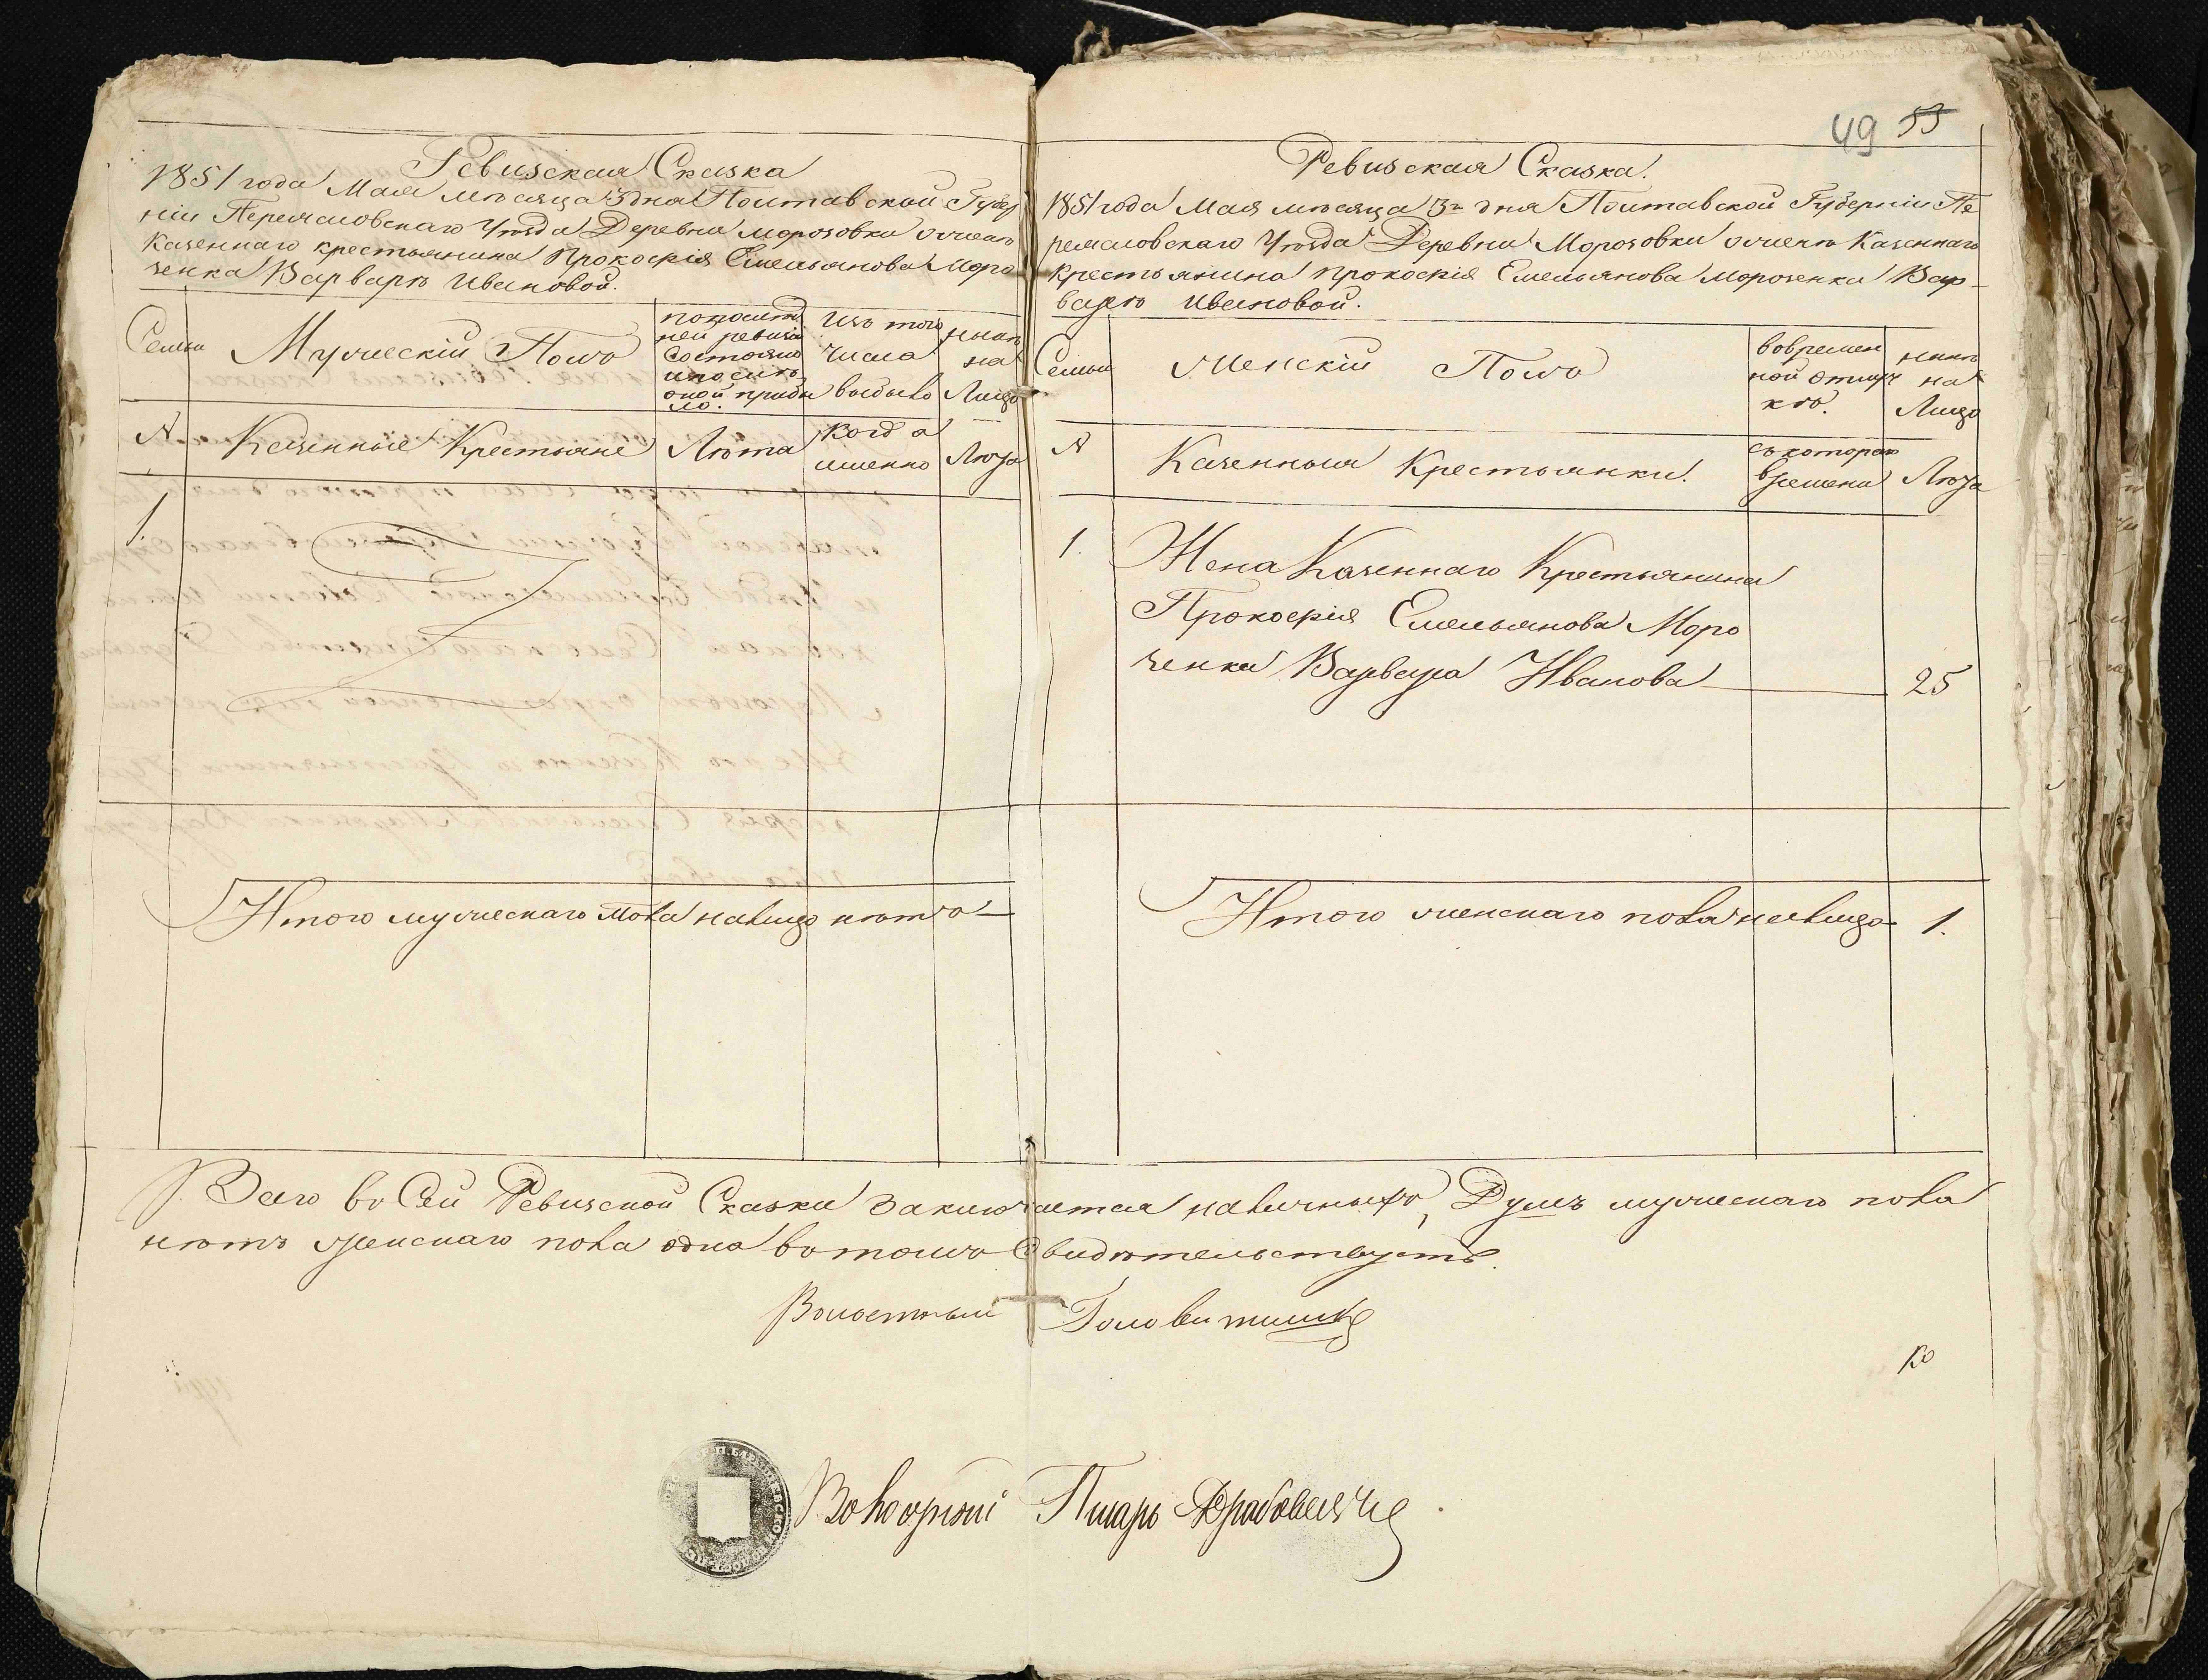 Ревизская Сказка
1851 года Мая мѣсяца 3 дня Полтавской Губер
ніи Переясловскаго Уѣзда Деревни Морозовки о женѣ
Казеннаго крестьянина Прокофія Емельянова Моро
зенка Варварѣ Ивановой.
Семьи
Мужескій Полъ
по послѣд
ней ревизіи
состояло
и послѣ
оной прибы
ло.
Изъ того
числа
выбыло
нынѣ
на
Лицо
№
Казенные Крестьяне
Лѣта
Когда
именно
Лѣта
1.
Итого мужескаго пола налицо нѣтъ
49 55
Ревизская Сказка.
1851 года Мая мѣсяца 3го дня Полтавской Губерніи Пе
реясловскаго Уѣзда Деревни Морозовки о женѣ Казеннаго
Крестьянина Прокофія Емельянова Морозенка Вар
варѣ Ивановой.
Семьи
Женскій Полъ
во времен
ной отлуч
кѣ.
нынѣ
на
Лицо
№
Казенныя Крестьянки.
съ котораго
времени
Лѣта
1.
Жена Казеннаго Крестьянина
Прокофія Емельянова Моро
зенка Варвара Иванова 25
Итого женскаго пола налицо 1.
Всего въ Сей Ревизской Сказки заключается наличныхъ Душъ мужескаго пола
нѣтъ женскаго пола одна въ томъ Свидѣтельствуетъ.
Волостный Голова
Волостный Писарь